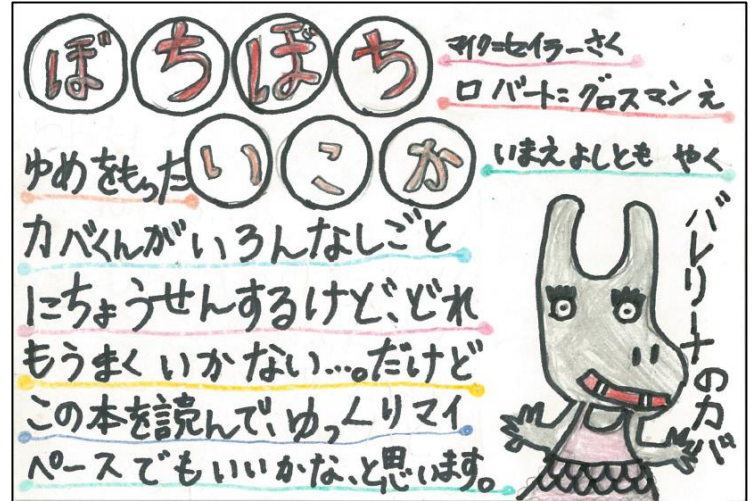 ぼちぼち
いこか
マイク=セイラーさく
ロバート=グロスマンえ
いまえよしとも やく
ゆめをもった
カバくんがいろんなしごと
にちょうせんするけど、どれ
もうまくいかない…。だけど
この本を読んで、ゆっくりマイ
ペースでもいいかな、と思います。
バレリーナのカバ